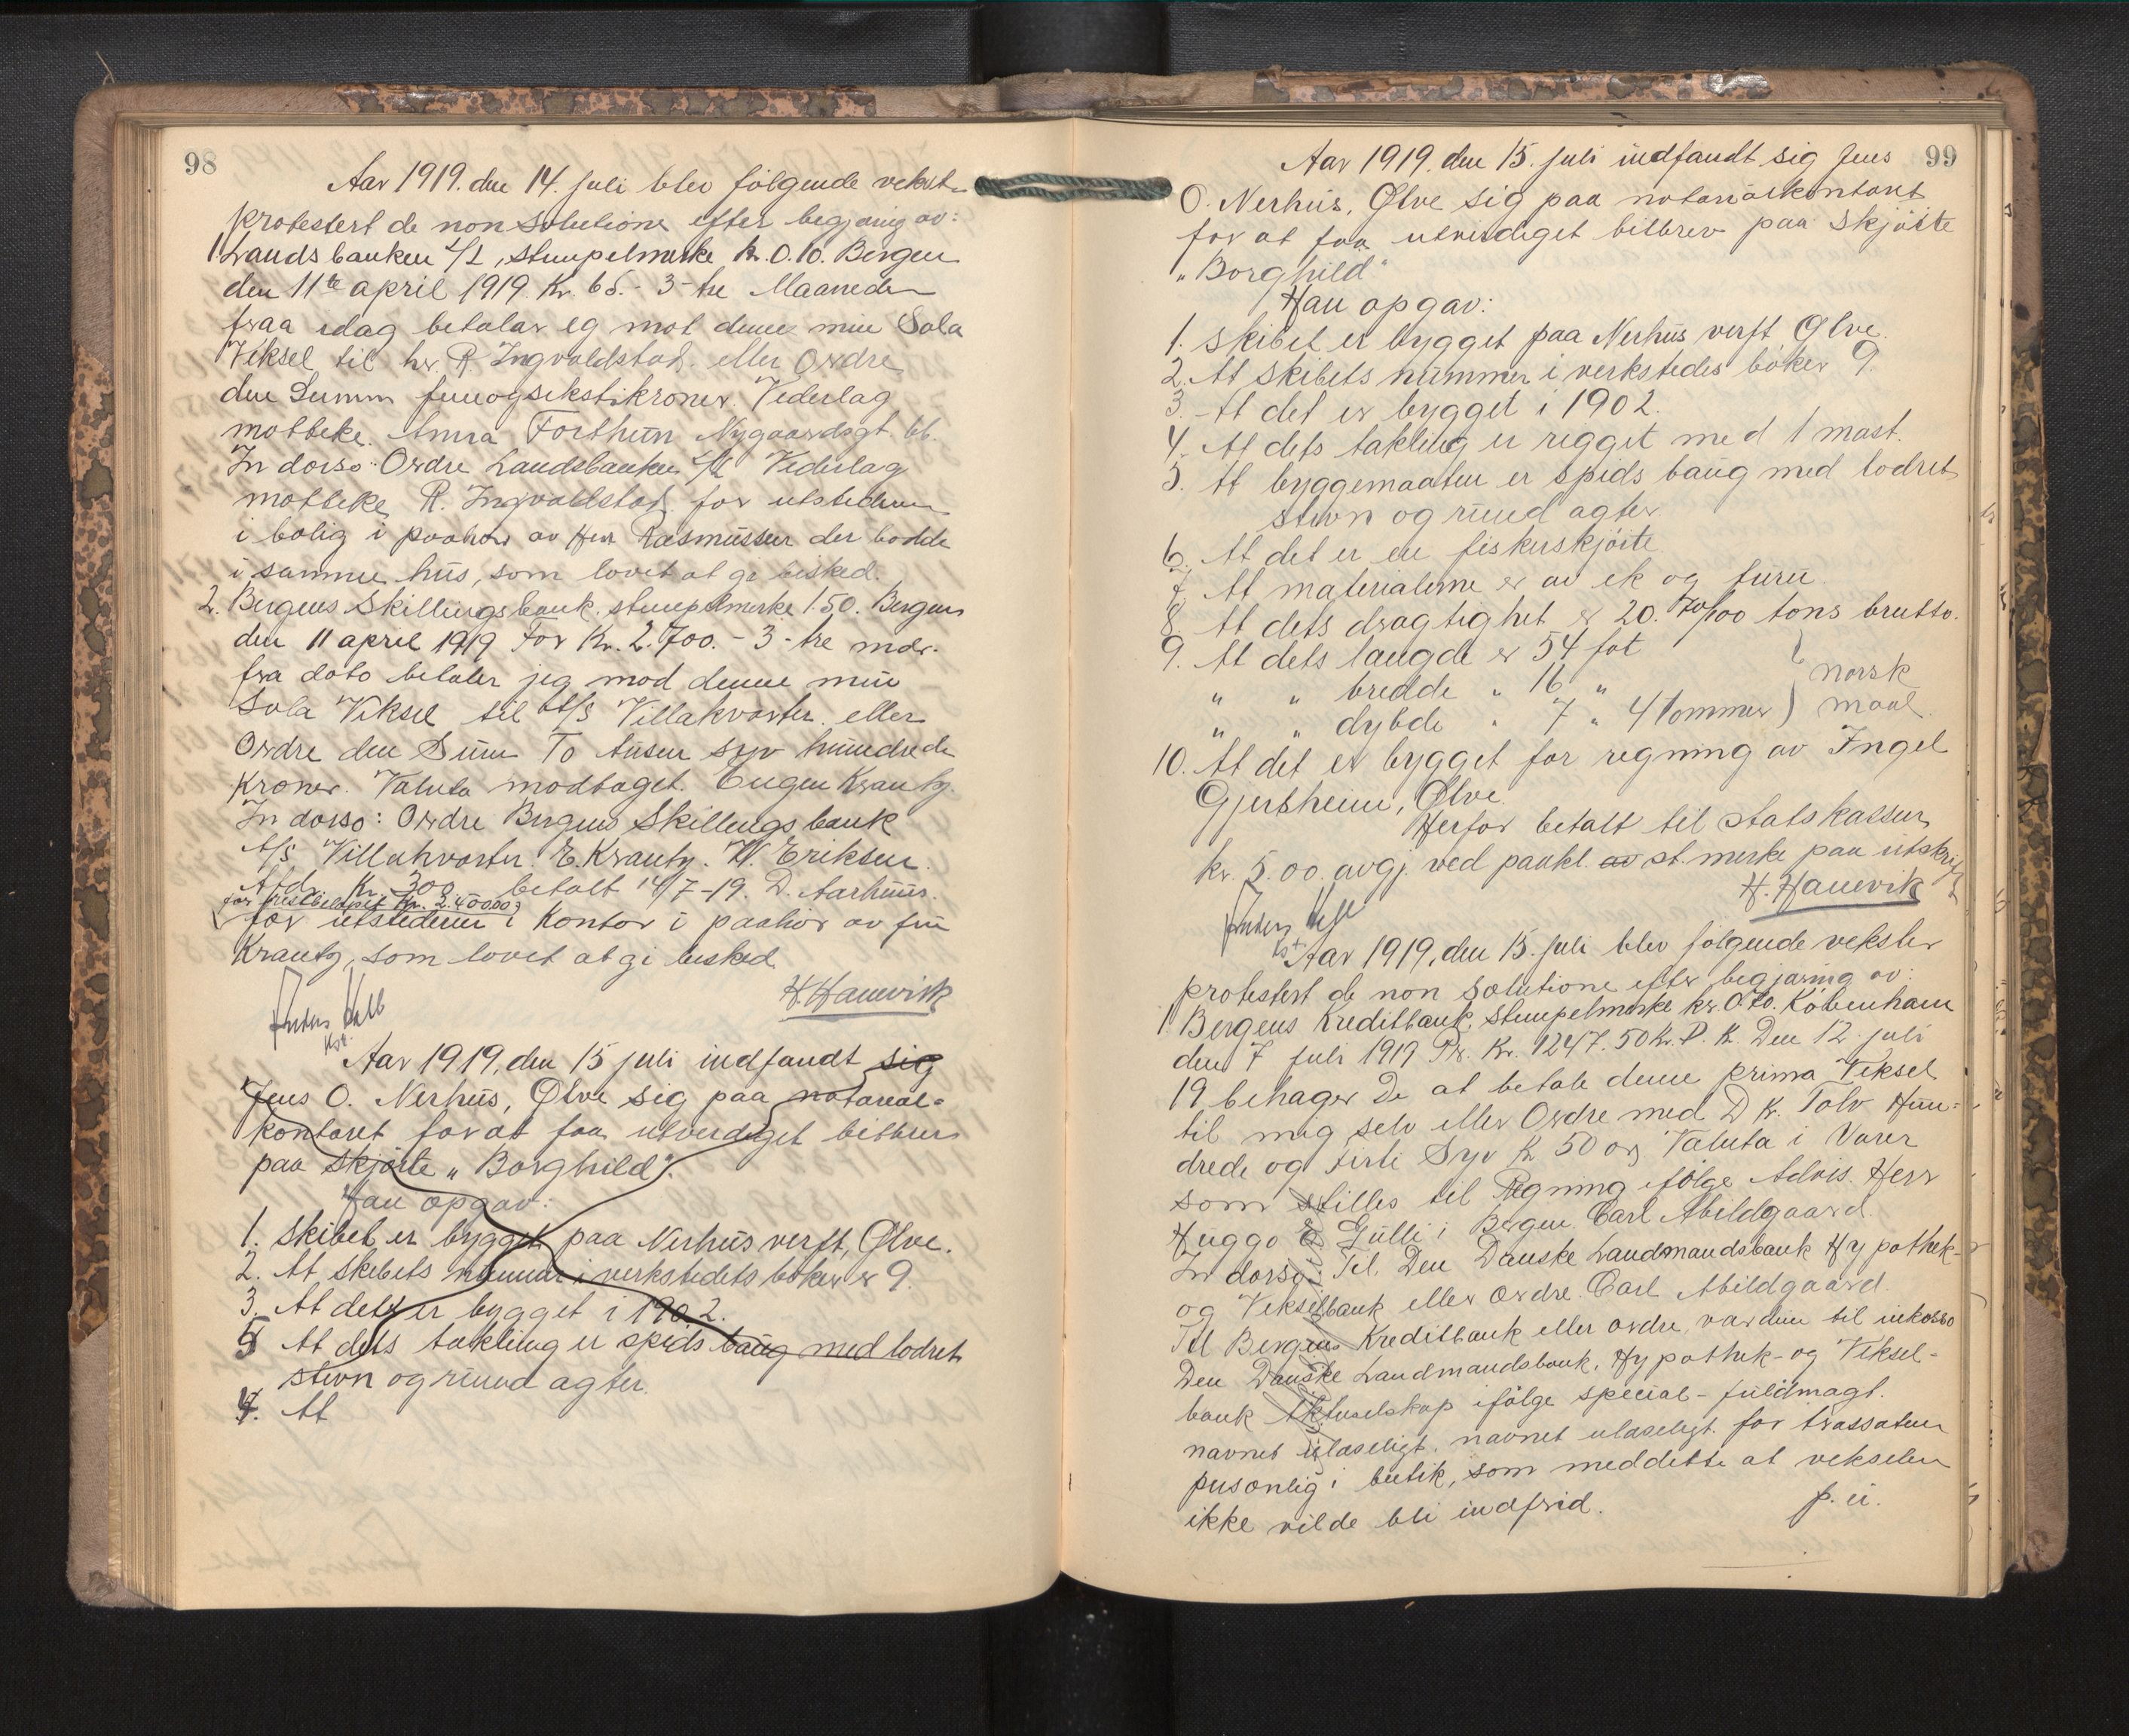 98
Aar 1919. den 14. juli blev følgende vekst.
protestert de non solutione efter begjæring av:
1. Landsbanken A/L, stempelmerke kr. 0.10. Bergen
den 11te april 1919. Kr. 65.- 3-tre Maaneder
fraa idag betalar eg mot denne min Sola
Veksel til hr. R. Ingvaldstad. eller Ordre
den Summ femogsekstikroner. Vederlag
motteke. Anna Forthun Nygaardsgt. 66.
In dorso: Ordre Landsbanken A/L Vederlag
motteke R. Ingvaldstad. for utstederen
i bolig i paahør av Herr Rasmussen der bodde
i samme hus, som lovet at gi besked.
2. Bergens Skillingsbank. stempelmerke 1.50. Bergen
den 11 april 1919 For Kr. 2.700.- 3-tre mdr.
fra dato betaler jeg mod denne min
Sola Veksel til A/S Villakvarter. eller
Ordre den Sum To tusen syv hundrede
Kroner. Valuta modtaget. Eugen Krantz.
In dorso: Ordre Bergens Skillingsbank
A/S. Villakvarter. E. Krantz. W. Eriksen.
Afdr. Kr. 300 betalt 14/7-19. D. Aarhuus.
for restbeløpet Kr. 2.400.00
for utstederen i Kontor i paahør av fru
Krantz, som lovet at gi besked.
H. Hamvik
Anders
Kst.
Aar 1919, den 15 juli indfandt sig
Jens O. Nerhus, Ølve sig paa notarial-
kontoret for at faa utverdiget bilbrev
paa skjøite "Borghild".
Han opgav:
1. Skibet er bygget paa Nerhus verft, Ølve.
2. At skibets nummer i verkstedets bøker er 9.
3. At det er bygget i 1902.
5 At dets takling er spids baug med lodret
stevn og rund agter.
4. At
99
Aar 1919. den 15. juli indfandt sig Jens
O. Nerhus, Ølve sig paa notarialkontoret
for at faa utverdiget bilbrev paa skjøite
"Borghild"
Han opgav:
1. Skibet er bygget paa Nerhus verft, Ølve.
2. At skibets nummer i verkstedes bøker 9.
3. At det er bygget i 1902.
4. At dets takling er rigget med 1 mast.
5. At byggemaaten er spids baug med lodret
stevn og rund agter
6. At det er en fiskerskjøite
7. At materialerne er av ek og furu
8. At dets drægtighet er 20. 70/100 tons brutto.
9. At dets længde er 54 fot
" " bredde " 16 " norsk
" " dybde " 7 " 4 Tommer) maal.
10. At det er bygget for regning av Ingel
Gjertsheim, Ølve.
Herfor betalt til statskassen
kr. 5.00. avgj. ved paakl. av st. merke paa utskrift
H. Hamvik
Anders
Kst.
Aar 1919, den 15. juli blev følgende veksler
protestert de non solutione efter begjæring av:
1. Bergens Kreditbank, stempelmerke kr. 0.70. København
den 7 juli 1919 Pr. Kr. 1247.50 Kr. D. K. Den 12 juli
19 behager De at betale denne prima Veksel
til mig selv eller Ordre med D Kr. Tolv Hun-
drede og Firti Syv Kr 50 ør Valuta i Varer
som stilles til Regning ifølge Advis. Herr
Huggo E Gulli i Bergen. Carl Abildgaard.
In dorso: Til Den Danske Landmandsbank Hypothek-
og Vekselbank eller Ordre. Carl Abildgaard
Til Bergens Kreditbank eller ordre, værdien til inkasso
Den Danske Landmandsbank, Hypothek- og Veksel-
bank Aktieselskap ifølge special-fuldmagt.
navnet ulæseligt. navnet ulæseligt. for trassaten
personlig i butik, som meddelte at vekselen
ikke vilde bli indfrid. p. u.